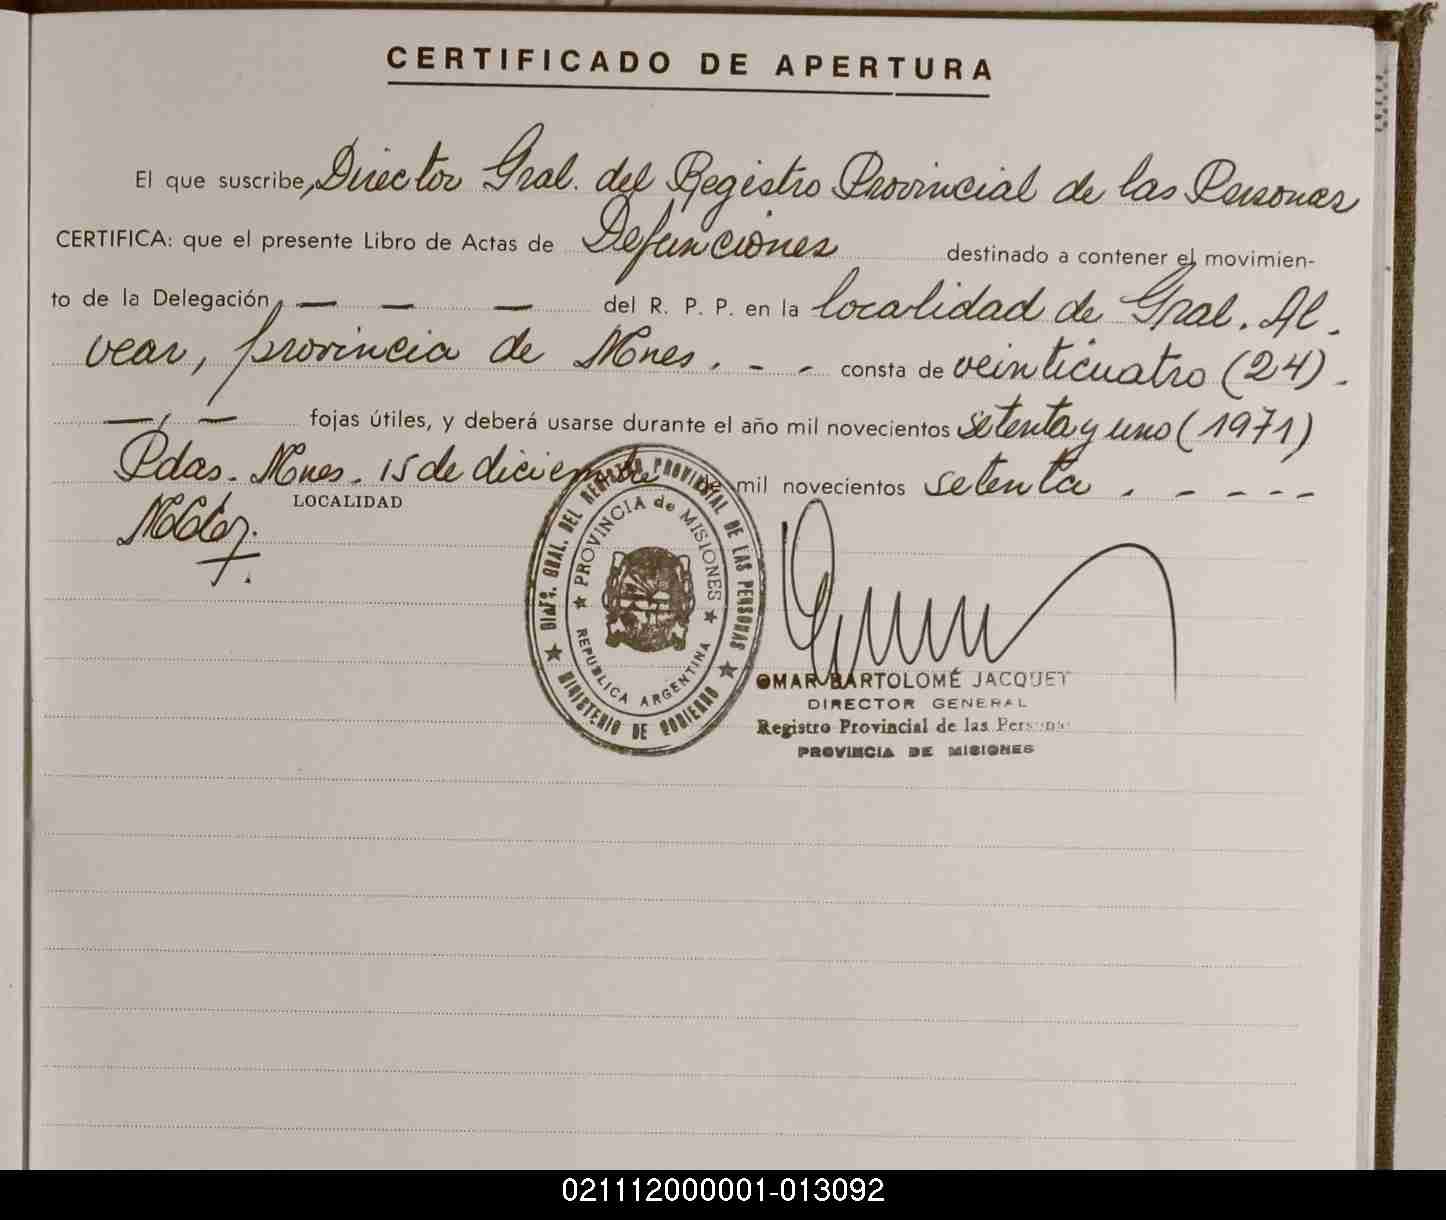 CERTIFICADO DE APERTURA
El que suscribe, Director Gral. del Registro Provincial de las Personas
CERTIFICA: que el presente Libro de Actas de Defunciones destinado a contener el movimien-
to de la Delegación, — — — del R. P. P. en la localidad de Gral. Al-
vear, provincia de Mnes. - - consta de veinticuatro (24) -
—, — fojas útiles, y deberá usarse durante el año mil novecientos setenta y uno (1971)
Pdas. Mnes. 15 de diciembre de mil novecientos setenta . - - - -
LOCALIDAD
DIREC. GRAL. DEL REGISTRO PROVINCIAL DE LAS PERSONAS
PROVINCIA de MISIONES
REPUBLICA ARGENTINA
MINISTERIO DE GOBIERNO
OMAR BARTOLOMÉ JACQUET
DIRECTOR GENERAL
Registro Provincial de las Personas
PROVINCIA DE MISIONES
021112000001-013092